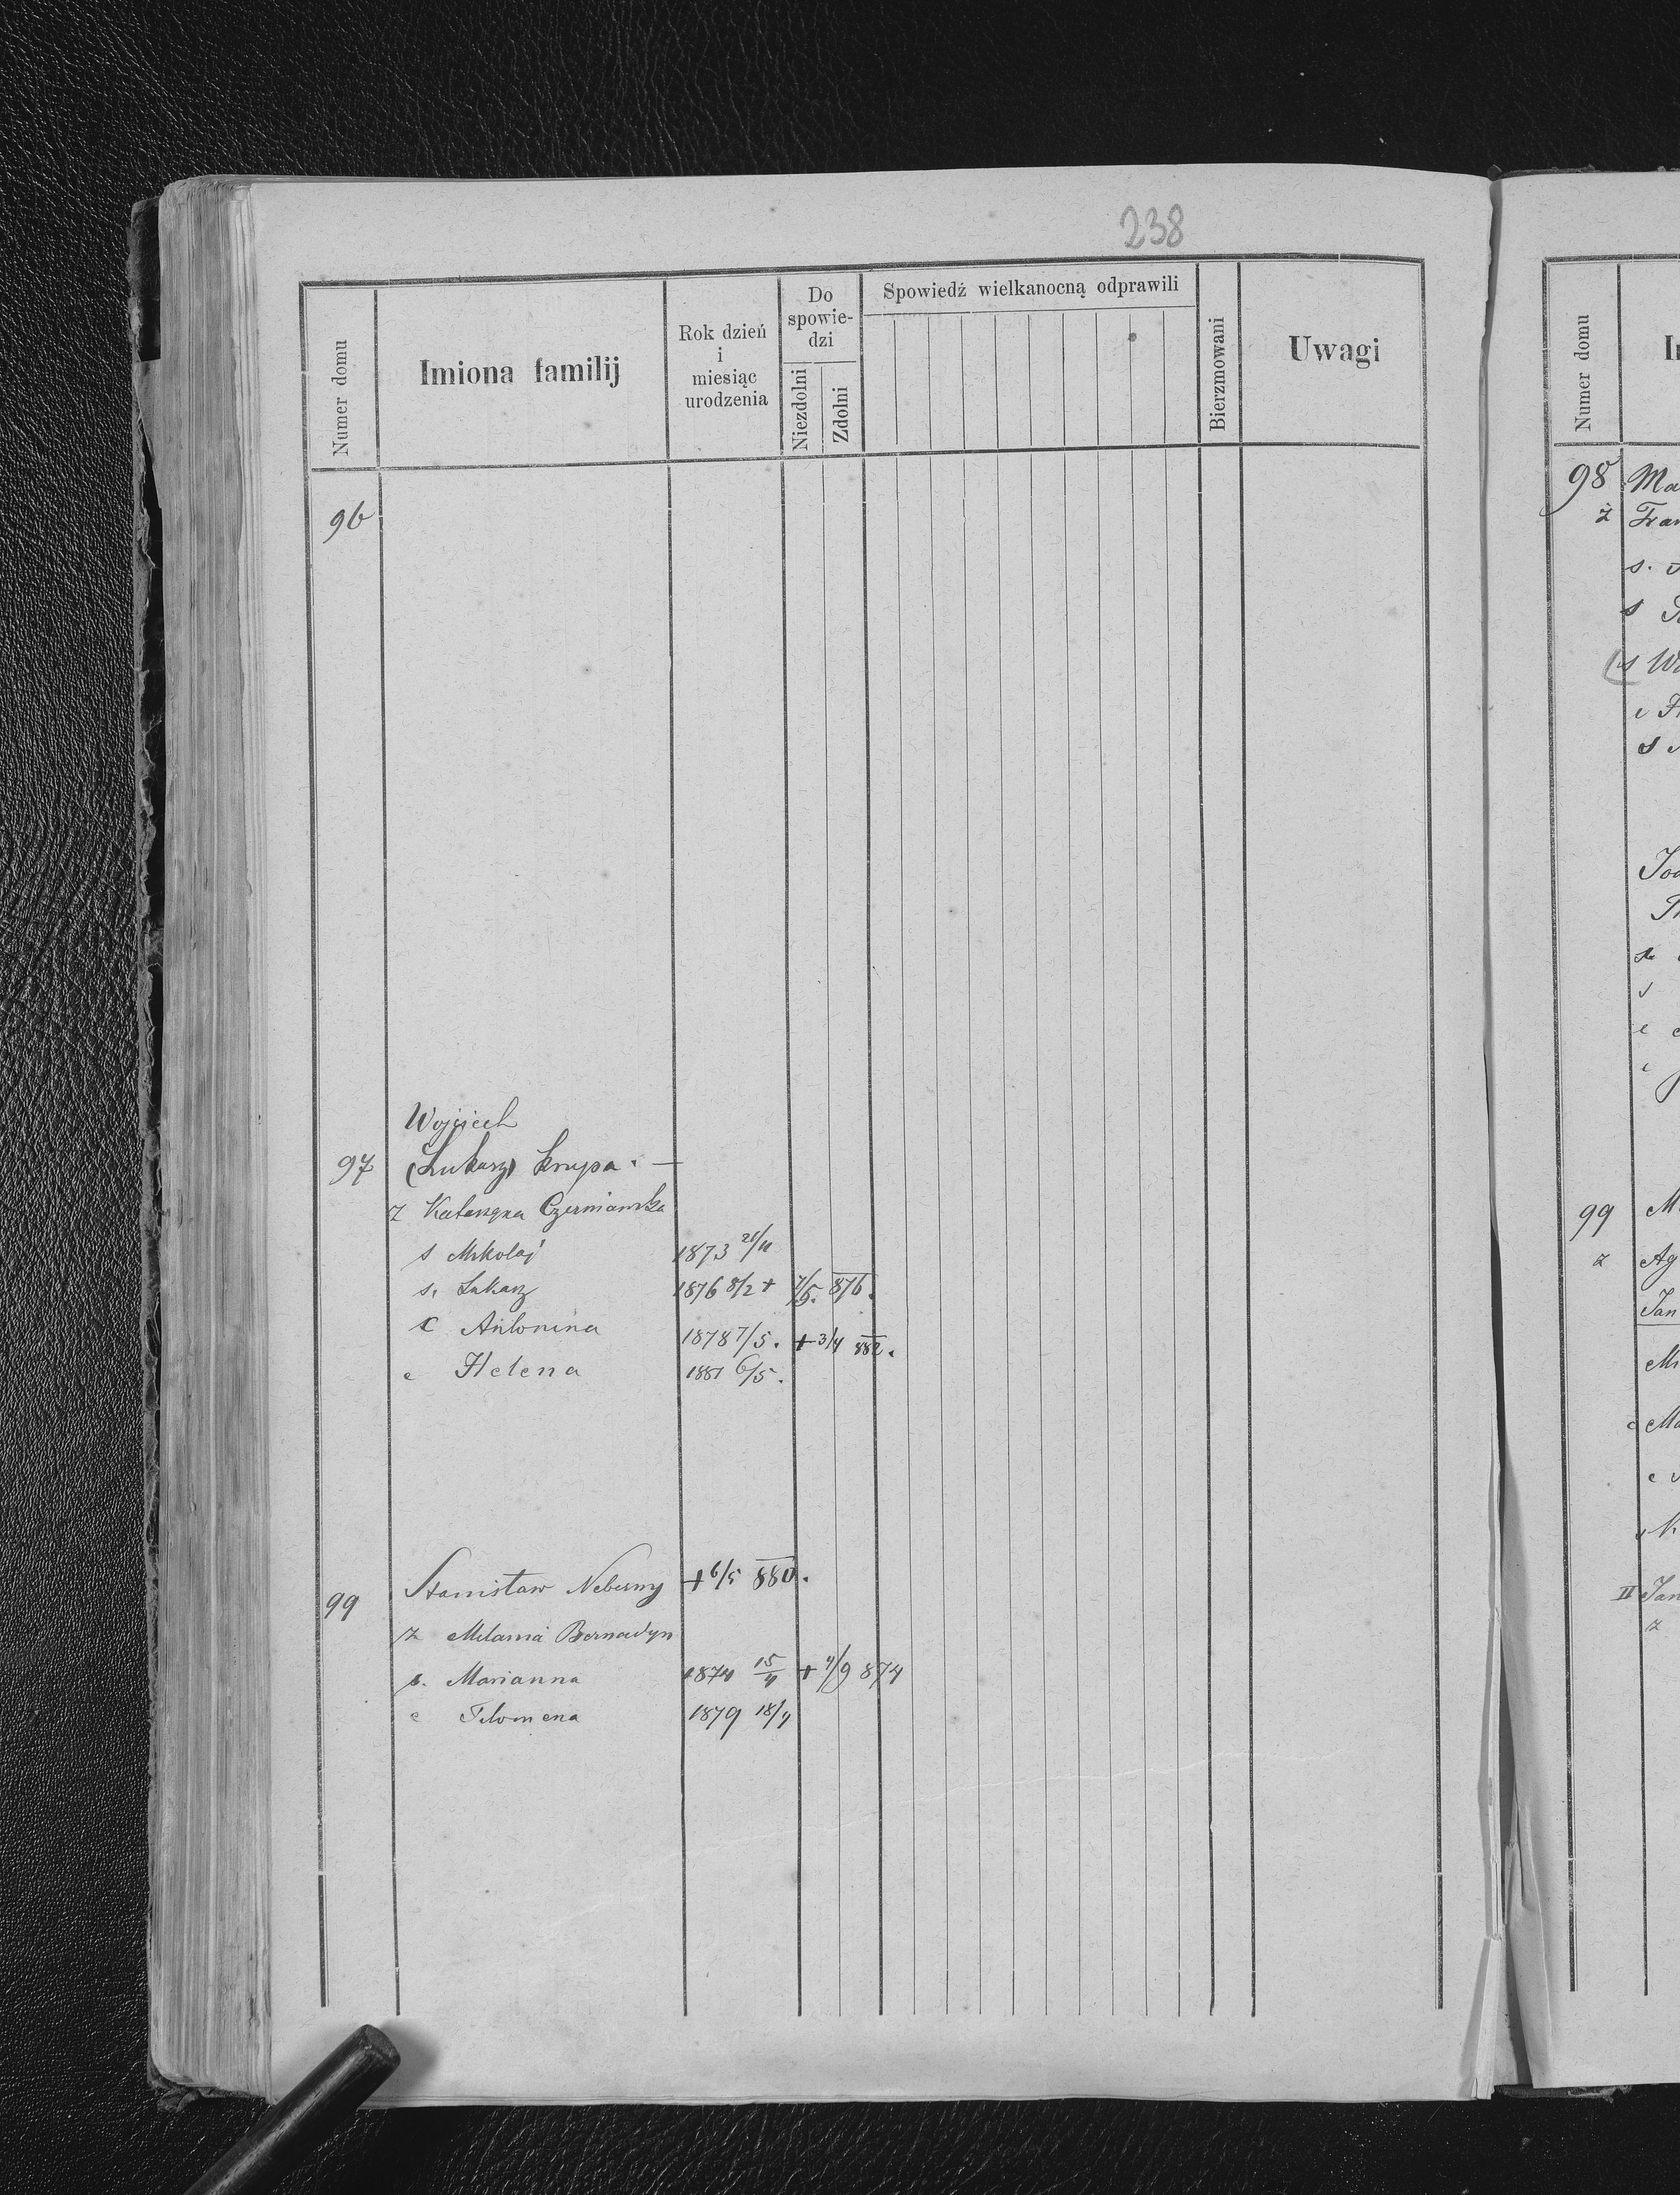 238
Numer domu
Imiona familij
Rok dzień
i
miesiąc
urodzenia
Do
spowie-
dzi
Niezdolni
Zdolni
Spowiedź wielkanocną odprawili
Bierzmowani
Uwagi
96
Wojciech
97 (Łukasz) Krupa. —
z Katarzyna Czerniawska
s Mikołaj 1873 21/11
s. Łukasz 1876 8/2 + 7/5. 876.
c Antonina 1878 7/5. + 3/4 882.
c Helena 1881 6/5.
99 Stanisław Nebesny + 6/5 880.
z Melania Bernadyn
c. Marianna 1874 15/4 + 4/9 874
c Filomena 1879 18/4
Numer domu
98 Ma
ż Fran
s.
s
s Wo
c
s
99 M
z Ag
Jan
c Ma
c
II Jan
z